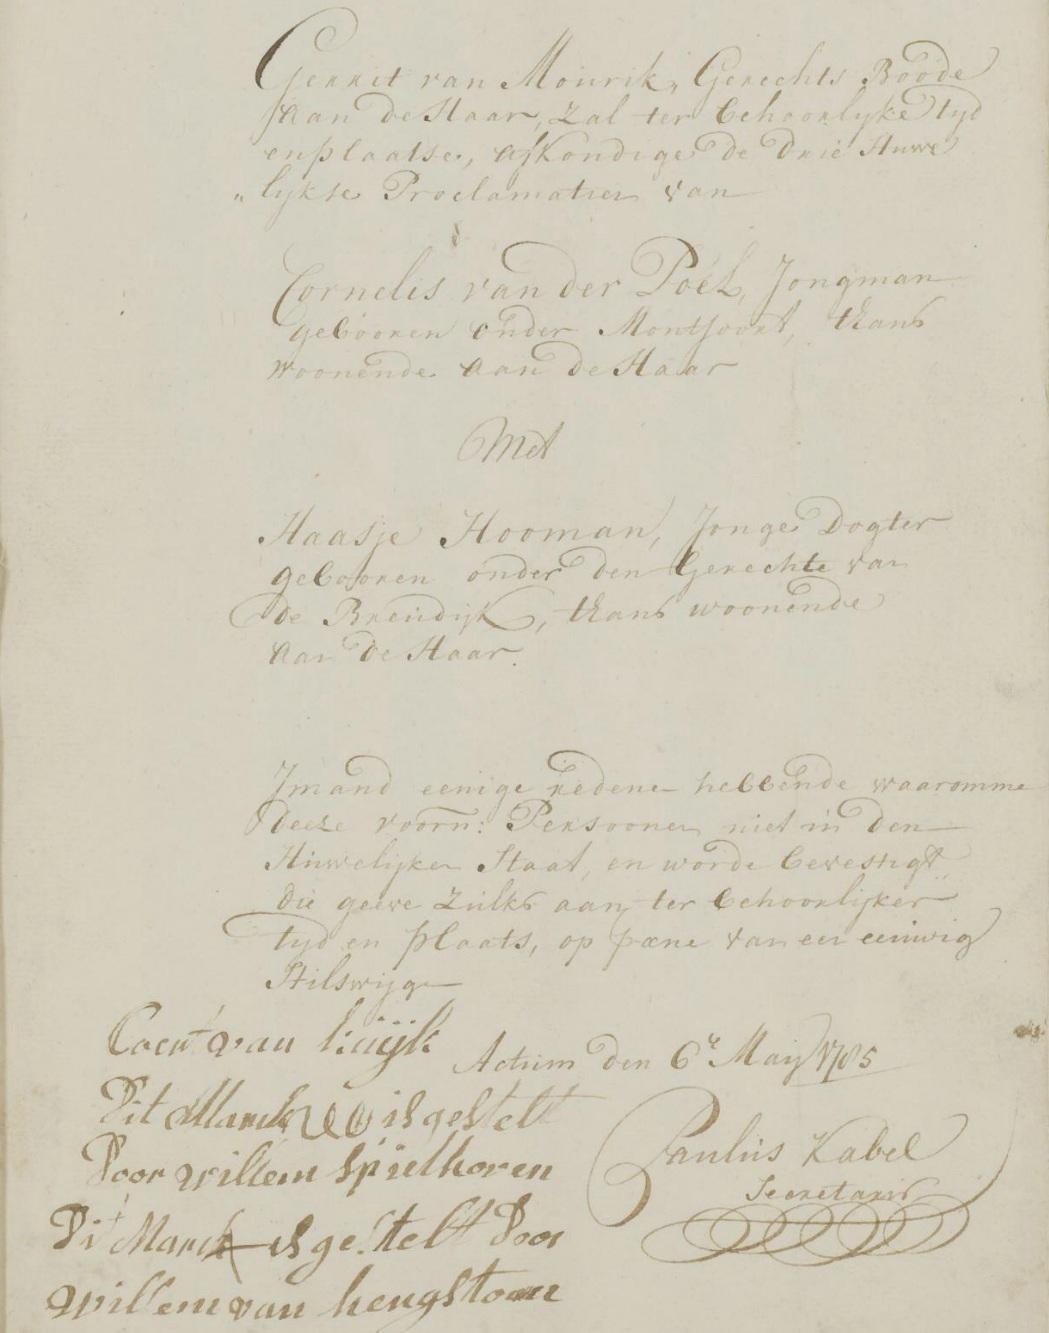 Gerrit van Mourik, Gerechts Boode
aan de Haar, zal ter behoorlyke tyd
en plaatse, afkondige de drie Huwe
„lykse Proclamatien van
Cornelis van der Poel, Jongman
gebooren onder Montfoort, thans
woonende aan de Haar
Met
Haasje Hooman, Jonge Dogter
gebooren onder den Gerechte van
de Breudijk, thans woonende
aan de Haar.
Jmand eenige redene hebbende waaromme
deeze voorn: Persoonen niet in den
Huwelijken Staat, en worde bevestigt
die geeve zulks aan, ter behoorlijker
tyd en plaats, op pæne van een eeuwig
Stilswijgen
Coert van kuijk
Actum den 6e May 1785
Dit Marck is gestelt
Door willem Spielhoven
Paulus Kabel
Secretaris
Dit Marck is gestelt Door
willem van hengstom